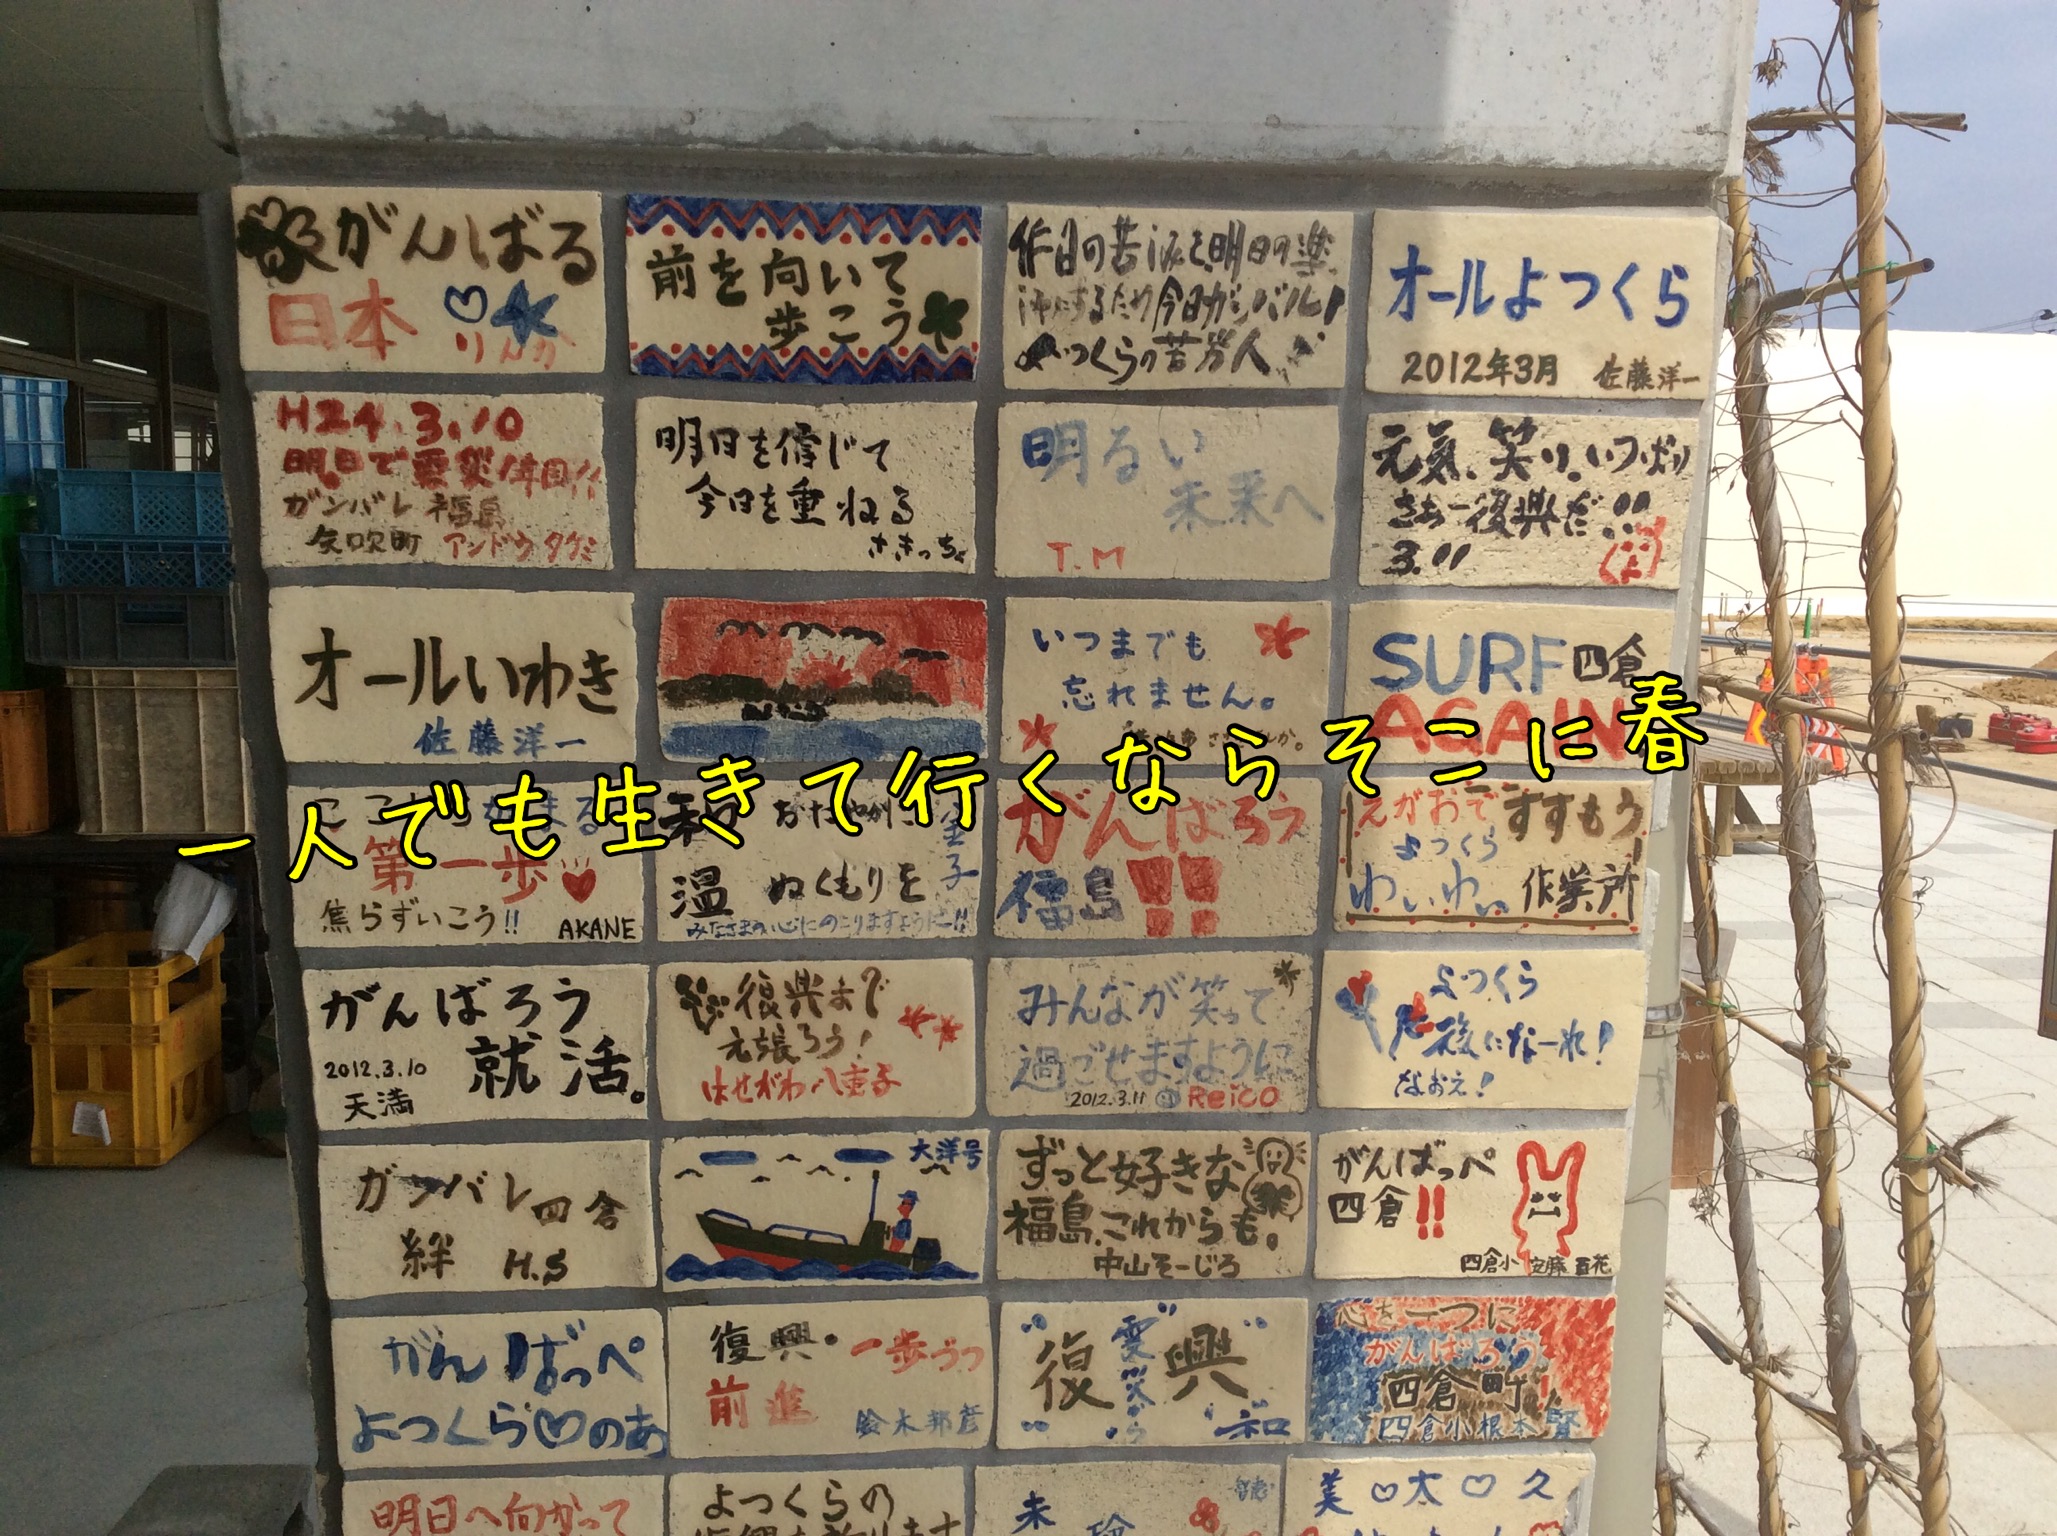 がんばる
日本
りんか
前を向いて
歩こう
昨日の苦
明日の楽
今日ガンバル!
よつくらの苦労人
オールよつくら
2012年3月 佐藤洋一
H24.3.10
明日で震災1年目!!
ガンバレ 福島
矢吹町 アンドウタケミ
明日を信じて
今日を重ねる
さきっちょ
明るい
未来へ
T.M
元気、笑い、いっぱい
さぁー復興だ!!
3.11
オールいわき
佐藤洋一
いつまでも
忘れません。
SURF四倉
AGAIN
一人でも生きて行くならそこに春
第一歩
焦らずいこう!!
AKANE
和
温 ぬくもりを
金子
みなさまの心にのこりますように!!
がんばろう
福島!!
えがおで すすもう
よつくら
わいわい 作業所
がんばろう
就活。
2012.3.10
天満
復興まで
元張ろう!
はせがわ 八重子
みんなが笑って
過ごせますように
2012.3.11 Reico
よつくら
になーれ!
なおえ!
ガンバレ四倉
絆 H.S
大洋号
ずっと好きな
福島、これからも。
中山そーじろ
がんばっぺ
四倉!!
四倉小 安藤 百花
がんばっぺ
よつくら♡のあ
復興・一歩づつ
前進 鈴木邦彦
復興
震災から
和
心を一つに
がんばろう
四倉町!
四倉小根本 賢
明日へ向かって
よつくらの
未
美♡大♡久